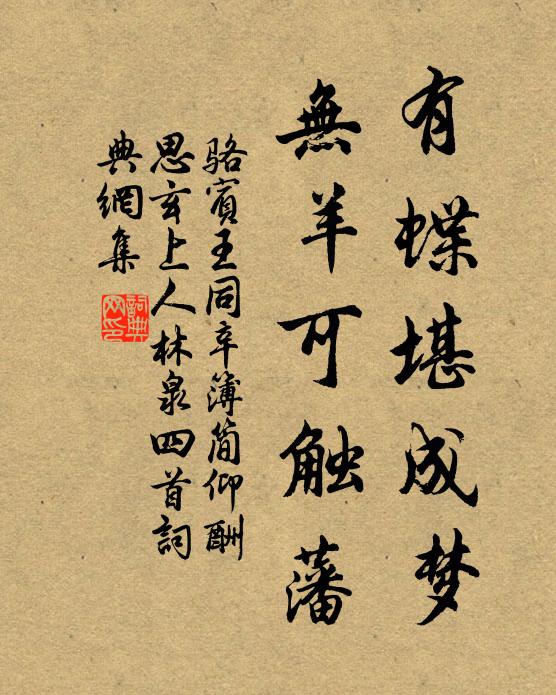 有蝶堪成梦
無羊可触藩
駱賓王同辛簿簡仰酬
思玄上人林泉四首詞
典網集
詞典
网印